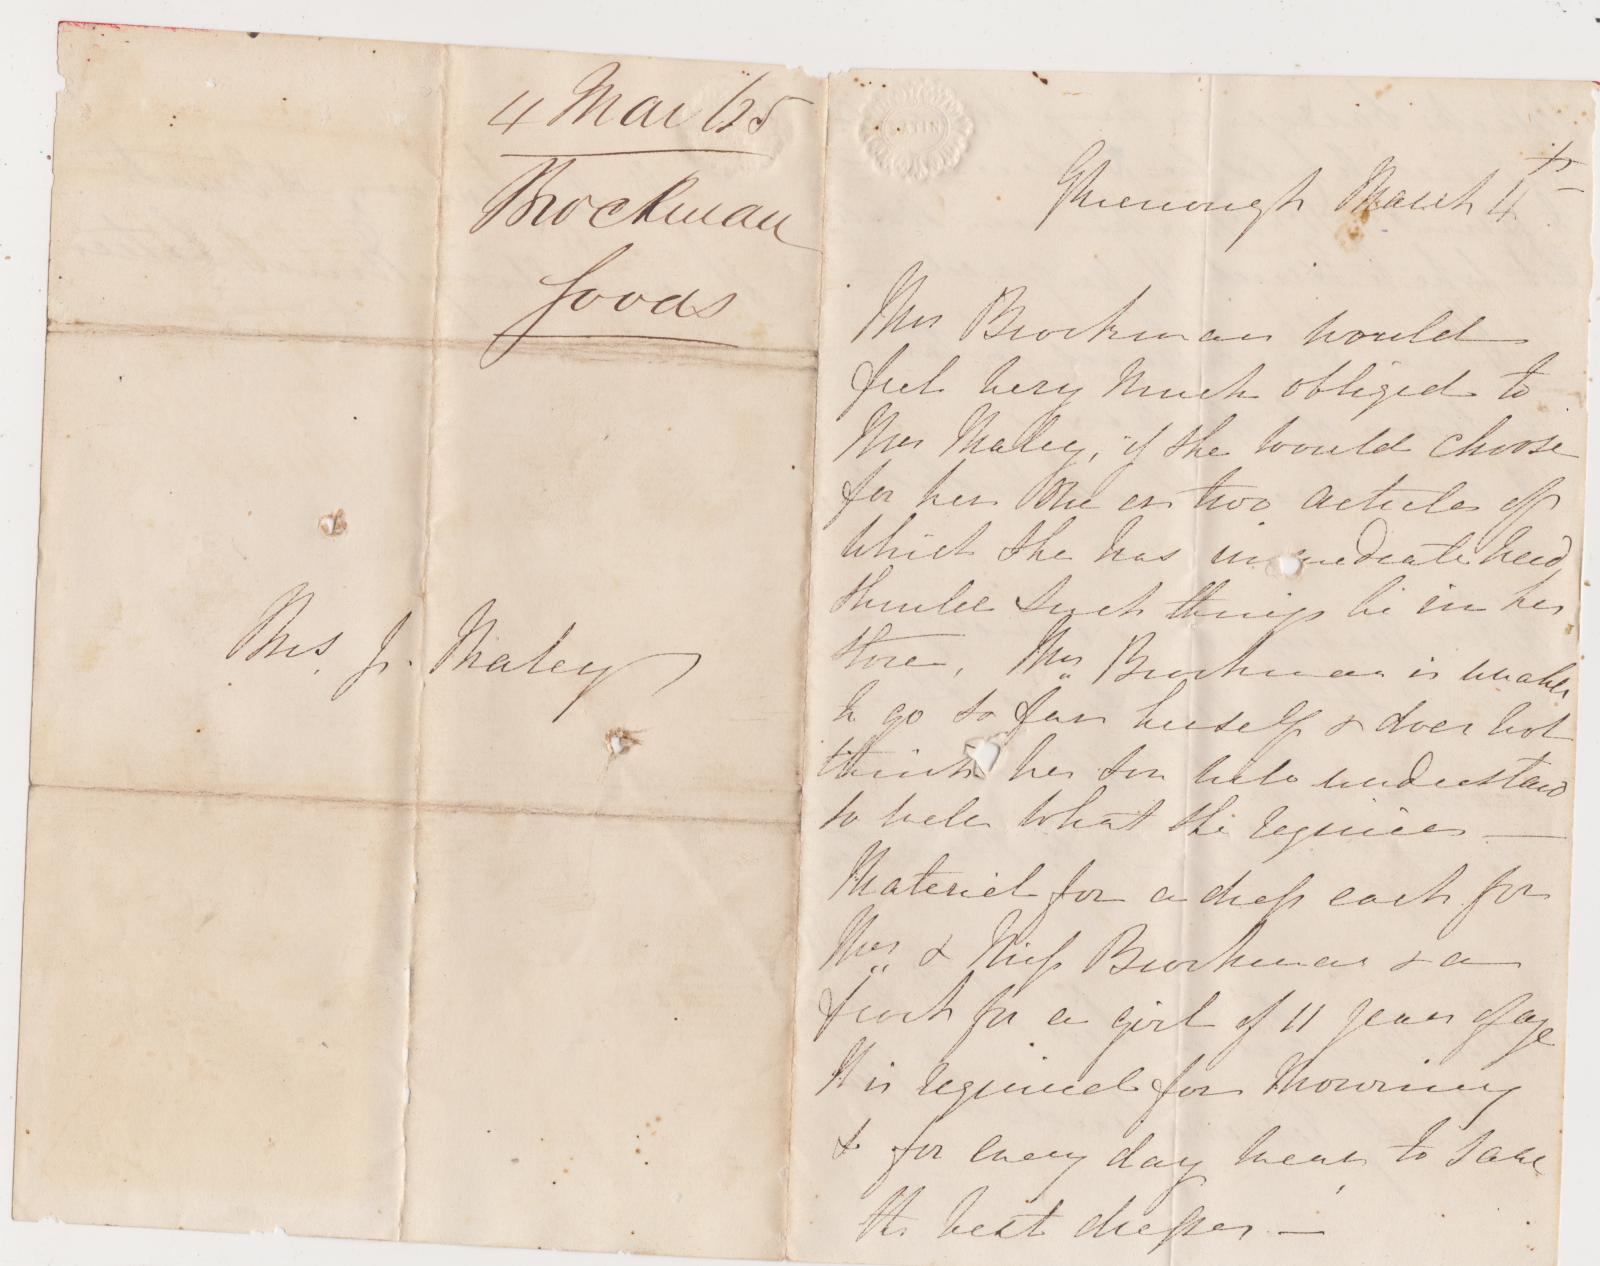 4 Mar /75
Brockman
Goods
Mrs. J. Maley
SATIN
Greenough March 4th
Mrs Brockman would
feel very much obliged to
Mrs Maley, if she would choose
for her one or two articles of
which she has immediate need,
should such things be in her
store, Mrs Brockman is unable
to go so far herself & does not
think her son will understand
to tell what she requires —
Material for a dress each for
Mrs & Miss Brockman & a
frock for a girl of 11 years of age
It is required for Mourning
& for every day wear to save
the best dresses —